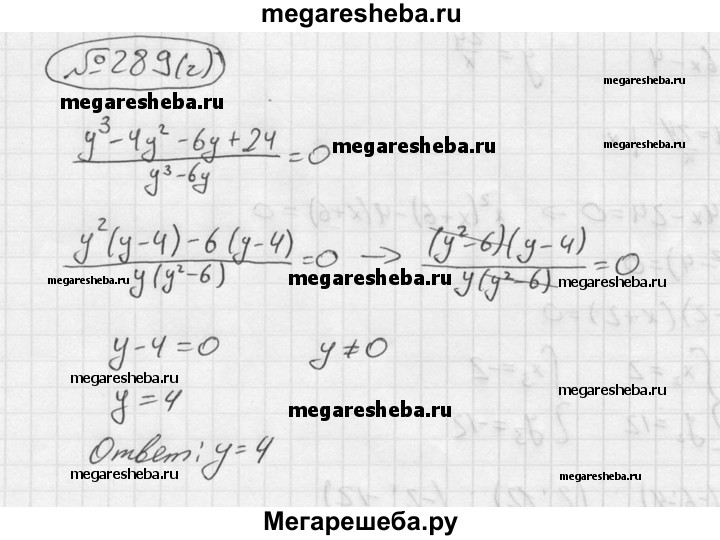 megaresheba.ru
№289(г)
megaresheba.ru
megaresheba.ru
(y³-4y²-6y+24)/(y³-6y)=0
megaresheba.ru
megaresheba.ru
(y²(y-4)-6(y-4))/(y(y²-6))=0 → ((y²-6)(y-4))/(y(y²-6))=0
megaresheba.ru
megaresheba.ru
megaresheba.ru
y-4=0 y≠0
megaresheba.ru
megaresheba.ru
y=4
megaresheba.ru
Ответ: y=4
megaresheba.ru
megaresheba.ru
Мегарешеба.ру